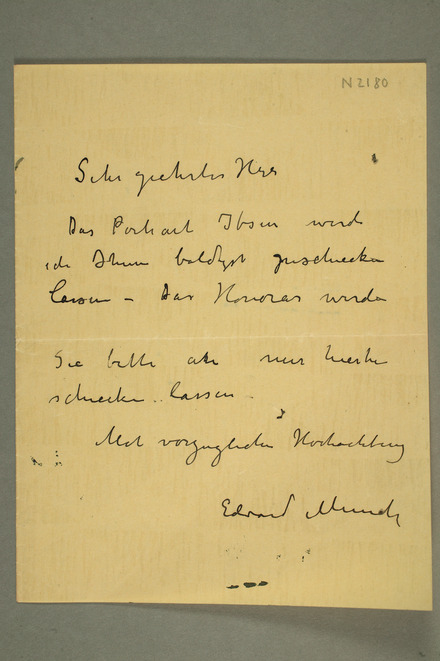 N 2180
Sehr geehrter Herr
Das Portrait Ibsen werde
ich Ihnen baldigst zuschicken
lassen – Das Honorar werden
Sie bitte an mir hierher
schicken lassen.
Mit vorzüglicher Hochachtung
Edvard Munch